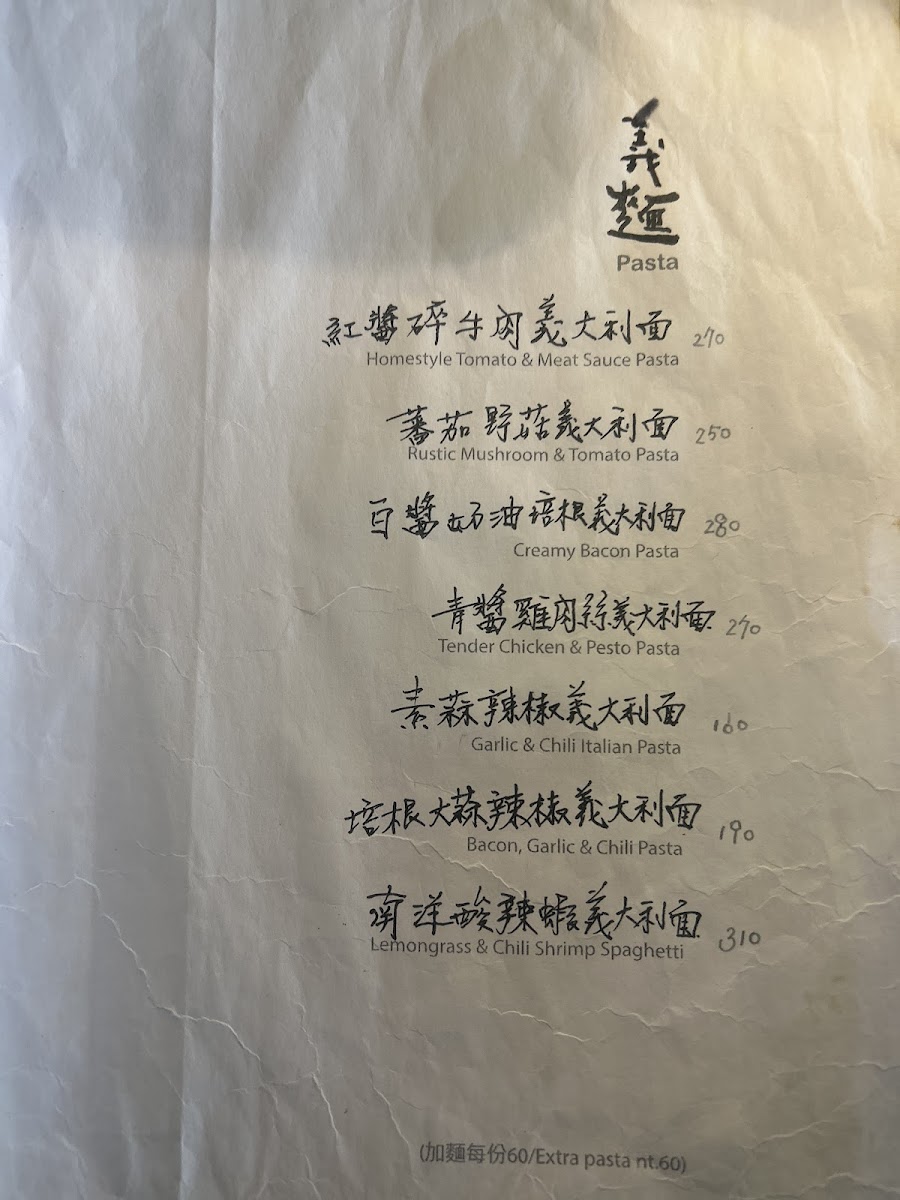 義麵
Pasta
紅醬碎牛肉義大利面 270
Homestyle Tomato & Meat Sauce Pasta
蕃茄野菇義大利面 250
Rustic Mushroom & Tomato Pasta
白醬奶油培根義大利面 280
Creamy Bacon Pasta
青醬雞肉絲義大利面 270
Tender Chicken & Pesto Pasta
素蒜辣椒義大利面 160
Garlic & Chili Italian Pasta
培根大蒜辣椒義大利面 190
Bacon, Garlic & Chili Pasta
南洋酸辣蝦義大利面 310
Lemongrass & Chili Shrimp Spaghetti
(加麵每份60/Extra pasta nt.60)